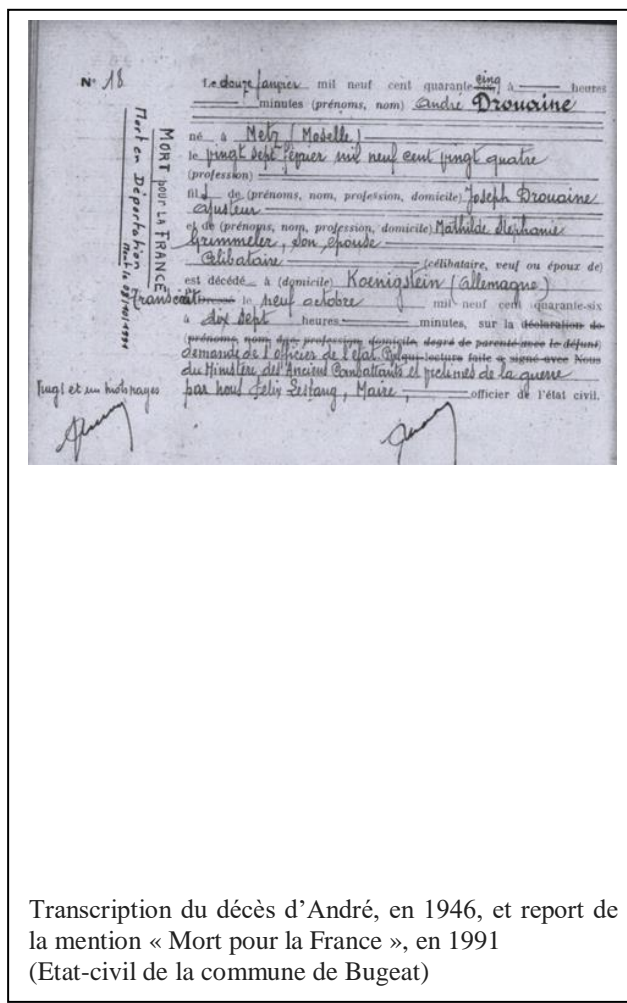 N° 18
Le douze janvier mil neuf cent quarante cinq à heures
minutes (prénoms, nom) André Drouaine
né à Metz (Moselle)
le vingt sept février mil neuf cent vingt quatre
(profession)
fils de (prénoms, nom, profession, domicile) Joseph Drouaine
ajusteur
et de (prénoms, nom, profession, domicile) Mathilde Stephanie
Grimmeler, son épouse
Célibataire (célibataire, veuf ou époux de)
est décédé à (domicile) Koenigstein (Allemagne)
Transcrit le neuf octobre mil neuf cent quarante-six
à dix sept heures minutes, sur la déclaration de
(prénoms, nom, âge, profession, domicile, degré de parenté avec le défunt)
demande de l'officier de l'état civil qui lecture faite a signé avec Nous
du Ministère des Anciens Combattants et victimes de la guerre
par nous Felix Lestang, Maire, officier de l'état civil.
MORT POUR LA FRANCE
Mort en Déportation
Vingt et un mots rayés
Transcription du décès d'André, en 1946, et report de
la mention « Mort pour la France », en 1991
(Etat-civil de la commune de Bugeat)